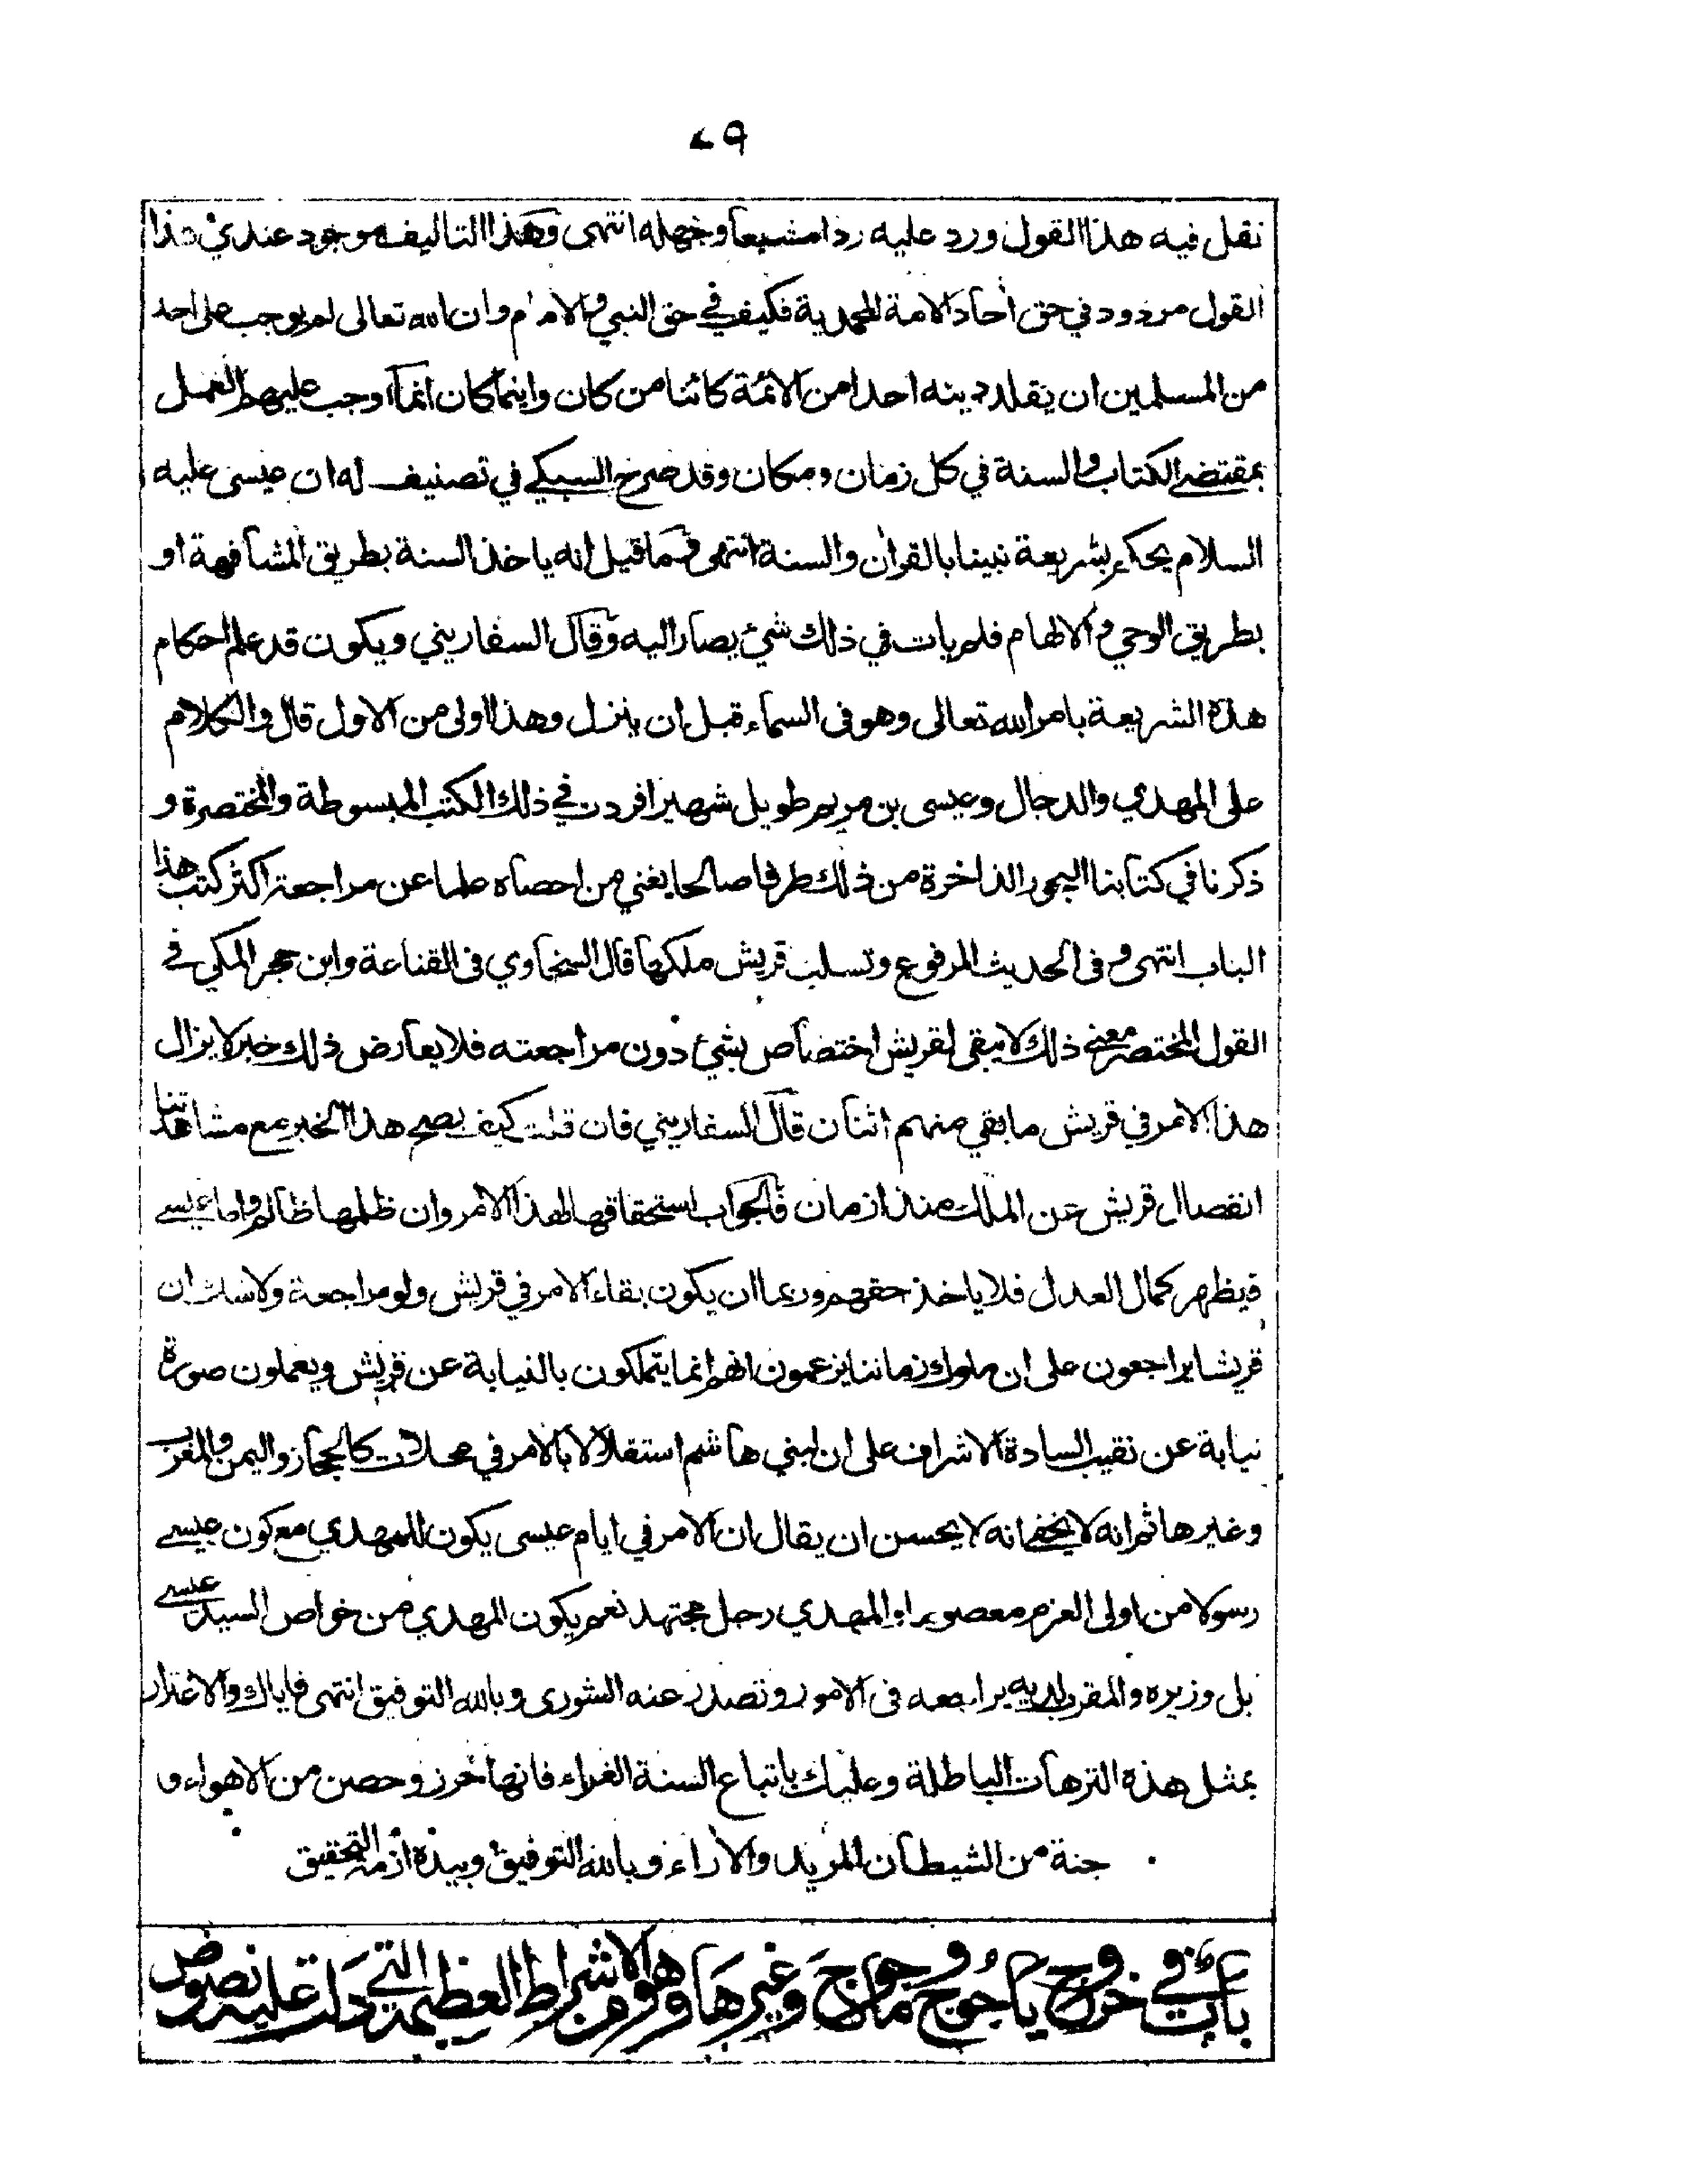 ٧٩
نقل فيه هذا القول ورد عليه ردا مشبعا وجهله انتهى وهذا التاليف موجود عندي هذا
القول مردود في حق أحاد الامة المحمدية فكيف في حق النبي والامام وان الله تعالى لم يوجب على احد
من المسلمين ان يقلد دينه احدا من الائمة كائنا من كان واينما كان انما اوجب عليهم العمل
بمقتضى الكتاب والسنة في كل زمان ومكان وقد صرح السبكي في تصنيف له ان عيسى عليه
السلام يحكم بشريعة نبينا بالقران والسنة انتهى وما قيل انه ياخذ السنة بطريق المشافهة او
بطريق الوحي والالهام فلم يات في ذلك شيء يصار اليه وقال السفاريني ويكون قد علم احكام
هذه الشريعة بامر الله تعالى وهو في السماء قبل ان ينزل وهذا اولى من الاول قال والكلام
على المهدي والدجال وعيسى بن مريم طويل شهير افردت في ذلك الكتب المبسوطة والمختصرة و
ذكرنا في كتابنا البحور الزاخرة من ذلك طرفا صالحا يغني من احصاه علما عن مراجعة اكثر كتب هذا
الباب انتهى وفي الحديث المرفوع وتسلب قريش ملكها قال السخاوي في القناعة وابن حجر المكي في
القول المختصر معنى ذلك لا يبقى لقريش اختصاص بشيء دون مراجعته فلا يعارض ذلك خبر لا يزال
هذا الامر في قريش ما بقي منهم اثنان قال السفاريني فان قلت كيف يصح هذا الخبر مع مشاهدتنا
انفصال قريش عن الملك منذ ازمان فالجواب استحقاقها لهذا الامر وان ظلمها ظالم واما عيسى
فيظهر كمال العدل فلا ياخذ حقهم وربما ان يكون بقاء الامر في قريش ولو مراجعة ولا شك ان
قريشا يراجعون على ان ملوك زماننا يزعمون انهم انما يتملكون بالنيابة عن قريش ويعملون صورة
نيابة عن نقيب السادة الاشراف على ان لبني هاشم استقلالا بالامر في محلات كالحجاز واليمن والمغرب
وغيرها ثم انه لا يخفى انه لا يحسن ان يقال ان الامر في ايام عيسى يكون للمهدي مع كون عيسى
رسولا من اولى العزم معصوما والمهدي رجل مجتهد نعم يكون المهدي من خواص السيد عيسى
بل وزيره والمقرب لديه يراجعه في الامور وتصدر عنه الشورى وبالله التوفيق انتهى فاياك والاغترار
بمثل هذه الترهات الباطلة وعليك باتباع السنة الغراء فانها حرز وحصن من الاهواء و
جنة من الشيطان المريد والأراء وبالله التوفيق وبيده ازمة التحقيق
باب في خروج ياجوج وماجوج وغيرها وهو من الاشراط العظيمة التي دلت عليه نصوص